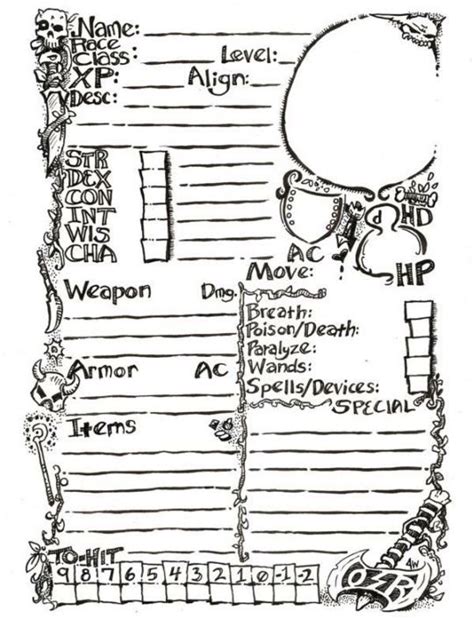 Name:
Race
Class: Level:
XP: Align:
Desc:
STR
DEX
CON
INT
WIS
CHA
d HD
AC
HP
Move:
Weapon Dmg.
Breath:
Poison/Death:
Paralyze:
Wands:
Spells/Devices:
Armor AC
SPECIAL
Items
TO-HIT
9 8 7 6 5 4 3 2 1 0 -1 -2